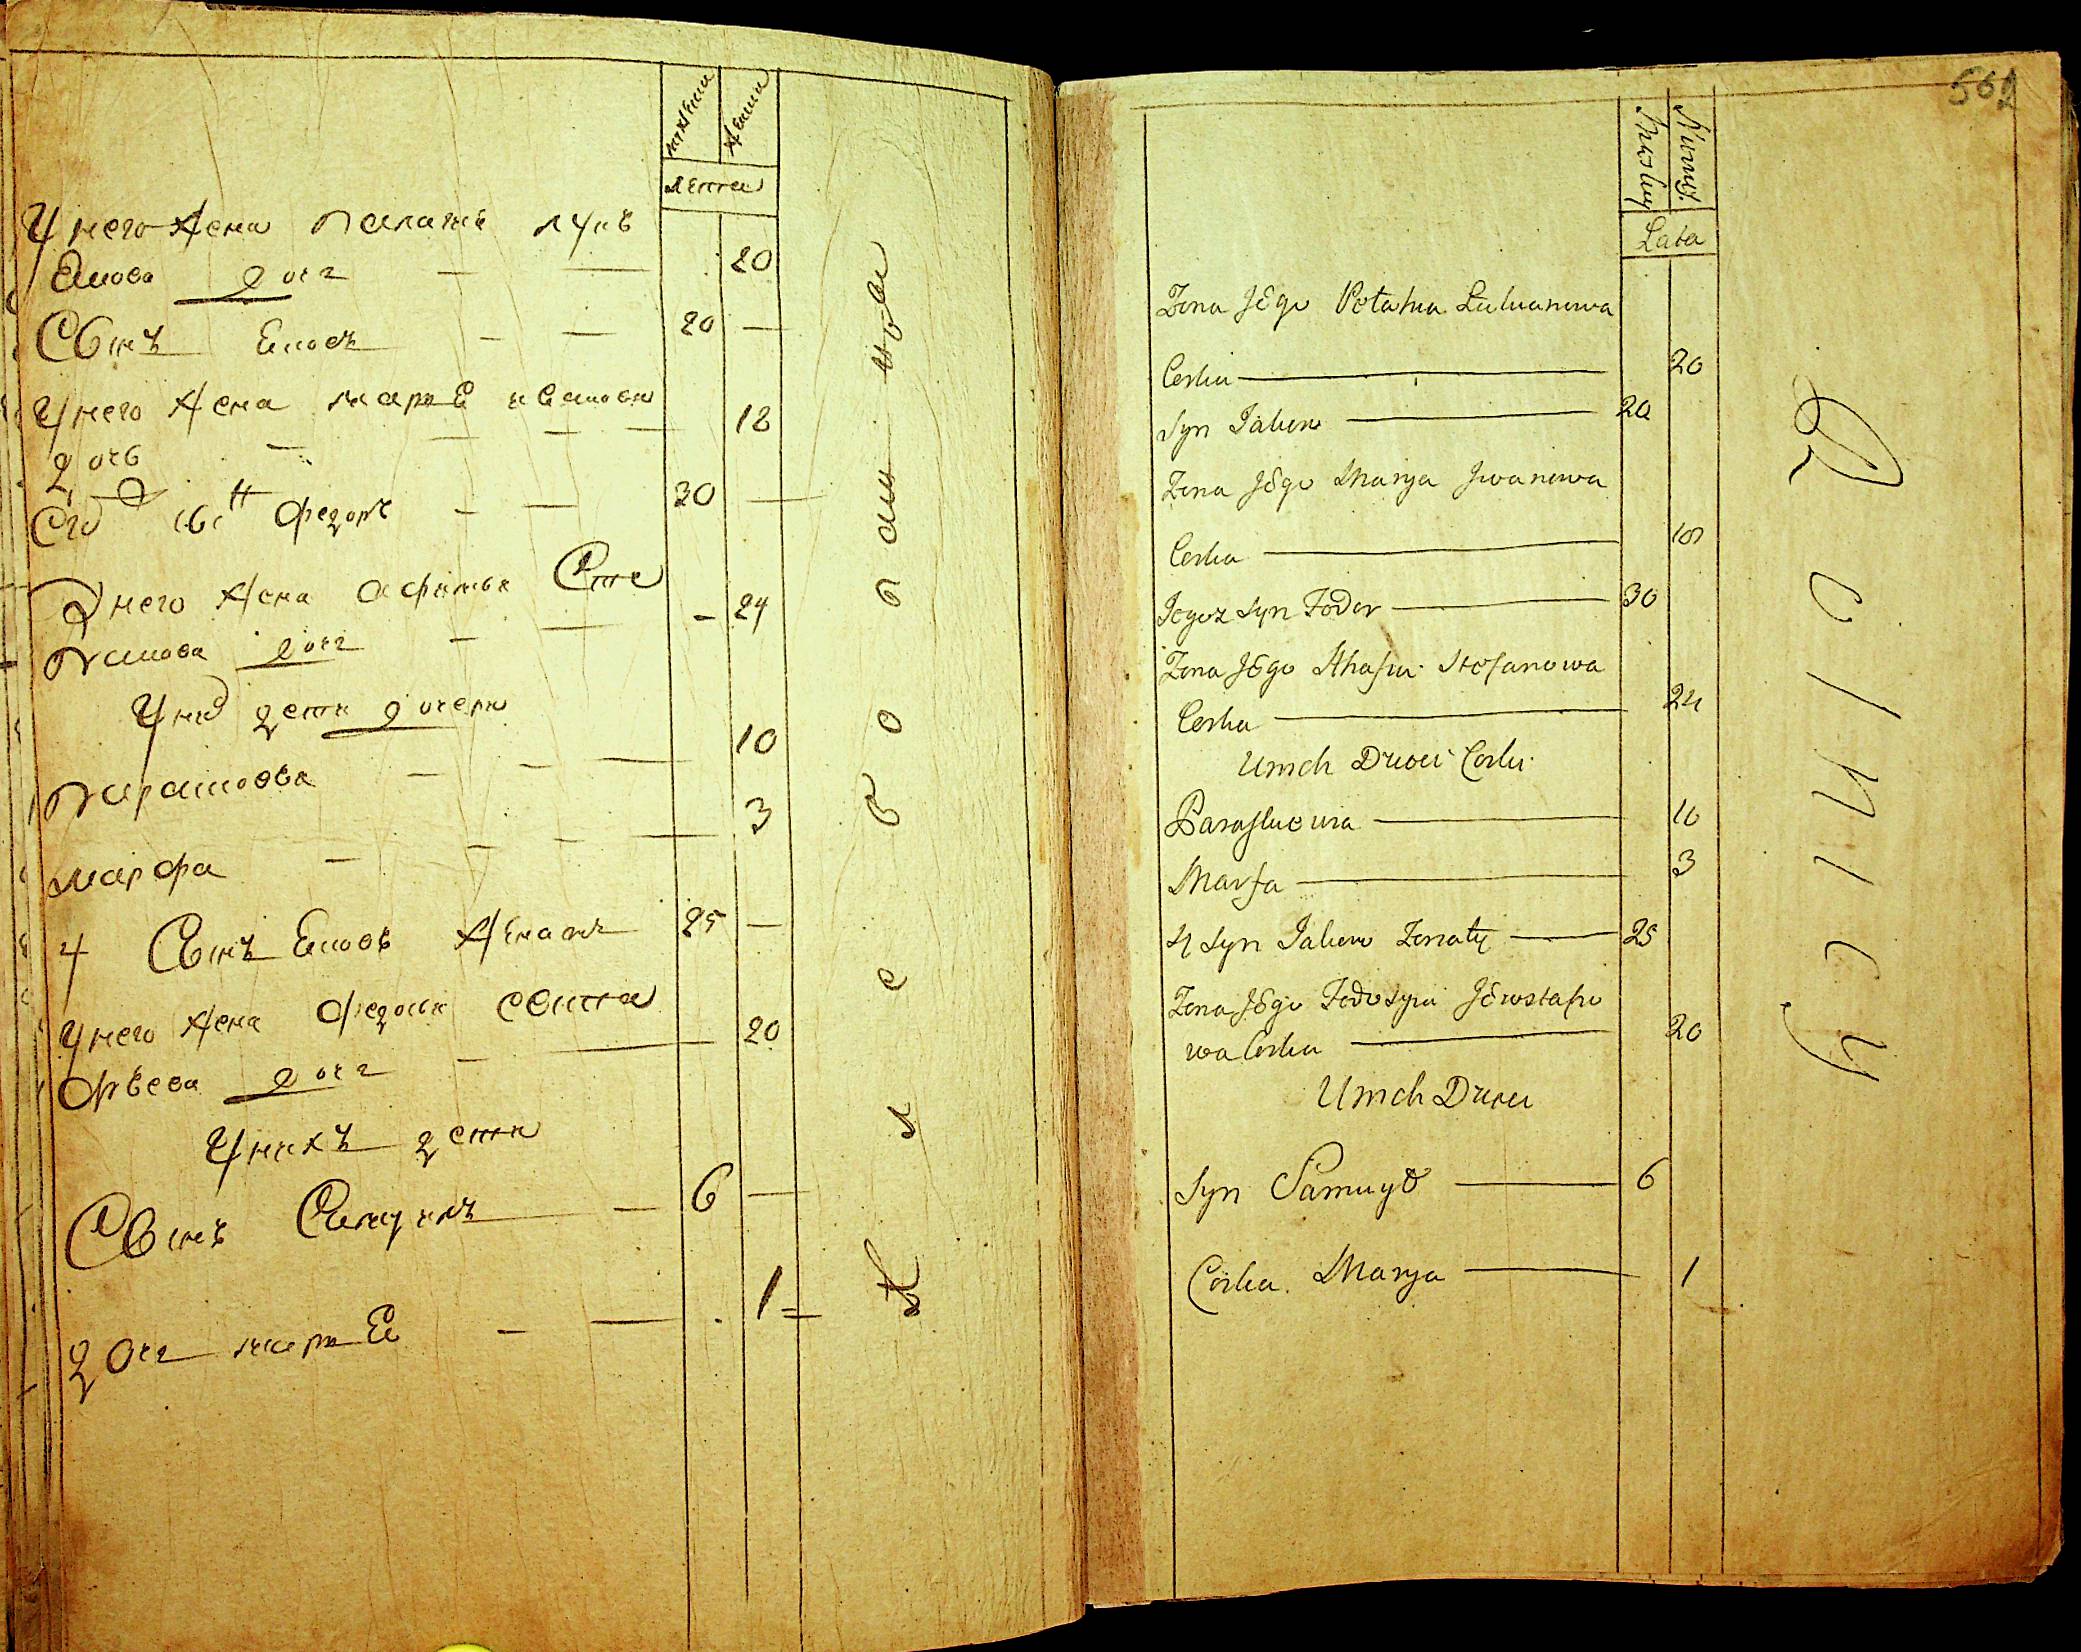 мужеска женска
лета
У него жена Палагиа Лукь
янова дочь — — 20
Сынъ Яковъ — — 20 —
У него жена мария ивановна
дочь — — — 18
Его сынъ Федоръ — — 30 —
У него жена Афимья Сте
панова дочь — — 24
У них дети дочери
Парасковя — — — 10
марфа — — — 3
4 Сынъ Яковъ женатъ 25 —
У него жена Федосья Евста
фьева дочь — — 20
У нихъ дети
Сынъ Самуилъ — 6 —
дочь мария — — 1
562
Męskiey Niewiey.
Lata
Zona Jego Połahia Łukianowa
Corka — 20
Syn Jakow — 20
Zona Jego Marya Jwanowa
Corka — 18
Jegoz Syn Fodor — 30
Zona Jego Athafia Stefanowa
Corka — 24
U nich Dzieci Corki
Paraskewia — 10
Marfa — 3
4 Syn Jakow Zonaty — 25
Zona Jego Fedosyia Jewstafie
wa Corka — 20
U nich Dzieci
Syn Samuył — 6
Corka Marya — 1
Rolnicy